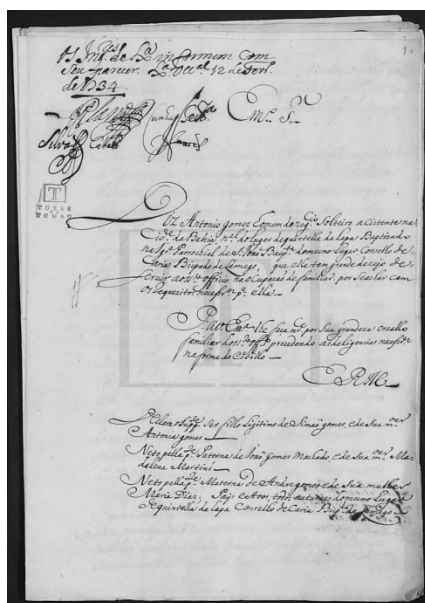 Os Inq.es de Lx.a informem com
seu parecer. Lx.a Occ.al 12 de
de 1734
1.
Em.o S.or
Silva
TORRE
DO
TOMBO
Diz Antonio Gomez homem de neg.cio Solteiro assistente na
Cid.e da Bahia, n.al do lugar de quintella da Lapa Baptizado
na Igr.a Parrochial de S. do mesmo lugar Conselho de
Caria Bispado de Lamego, que elle tem grande dezejo de
servir ao S.to officio na ocupação de familiar, por se achar com
os requezitos necess.os p.a ella
P. a V. Em.a lhe faça m.ce por sua grandeza crealo
familiar do S.to off.o precedendo as deligencias necess.as
na forma do estillo
E. R. M.
He elle Supp.te f.o Legitimo de Simaõ gomes, e de sua m.er
Antonia gomes
Neto pella p.te Paterna de Joaõ gomes Machado, e de sua m.er Ma-
dalena Martins
Neto pella p.te Materna de Andre gomes e de Sua mulher
Maria Diaz, Pays e Avos, todos naturaes do mesmo lugar
de quintella da Lapa Conselho de Caria Bisp.do de Lamego